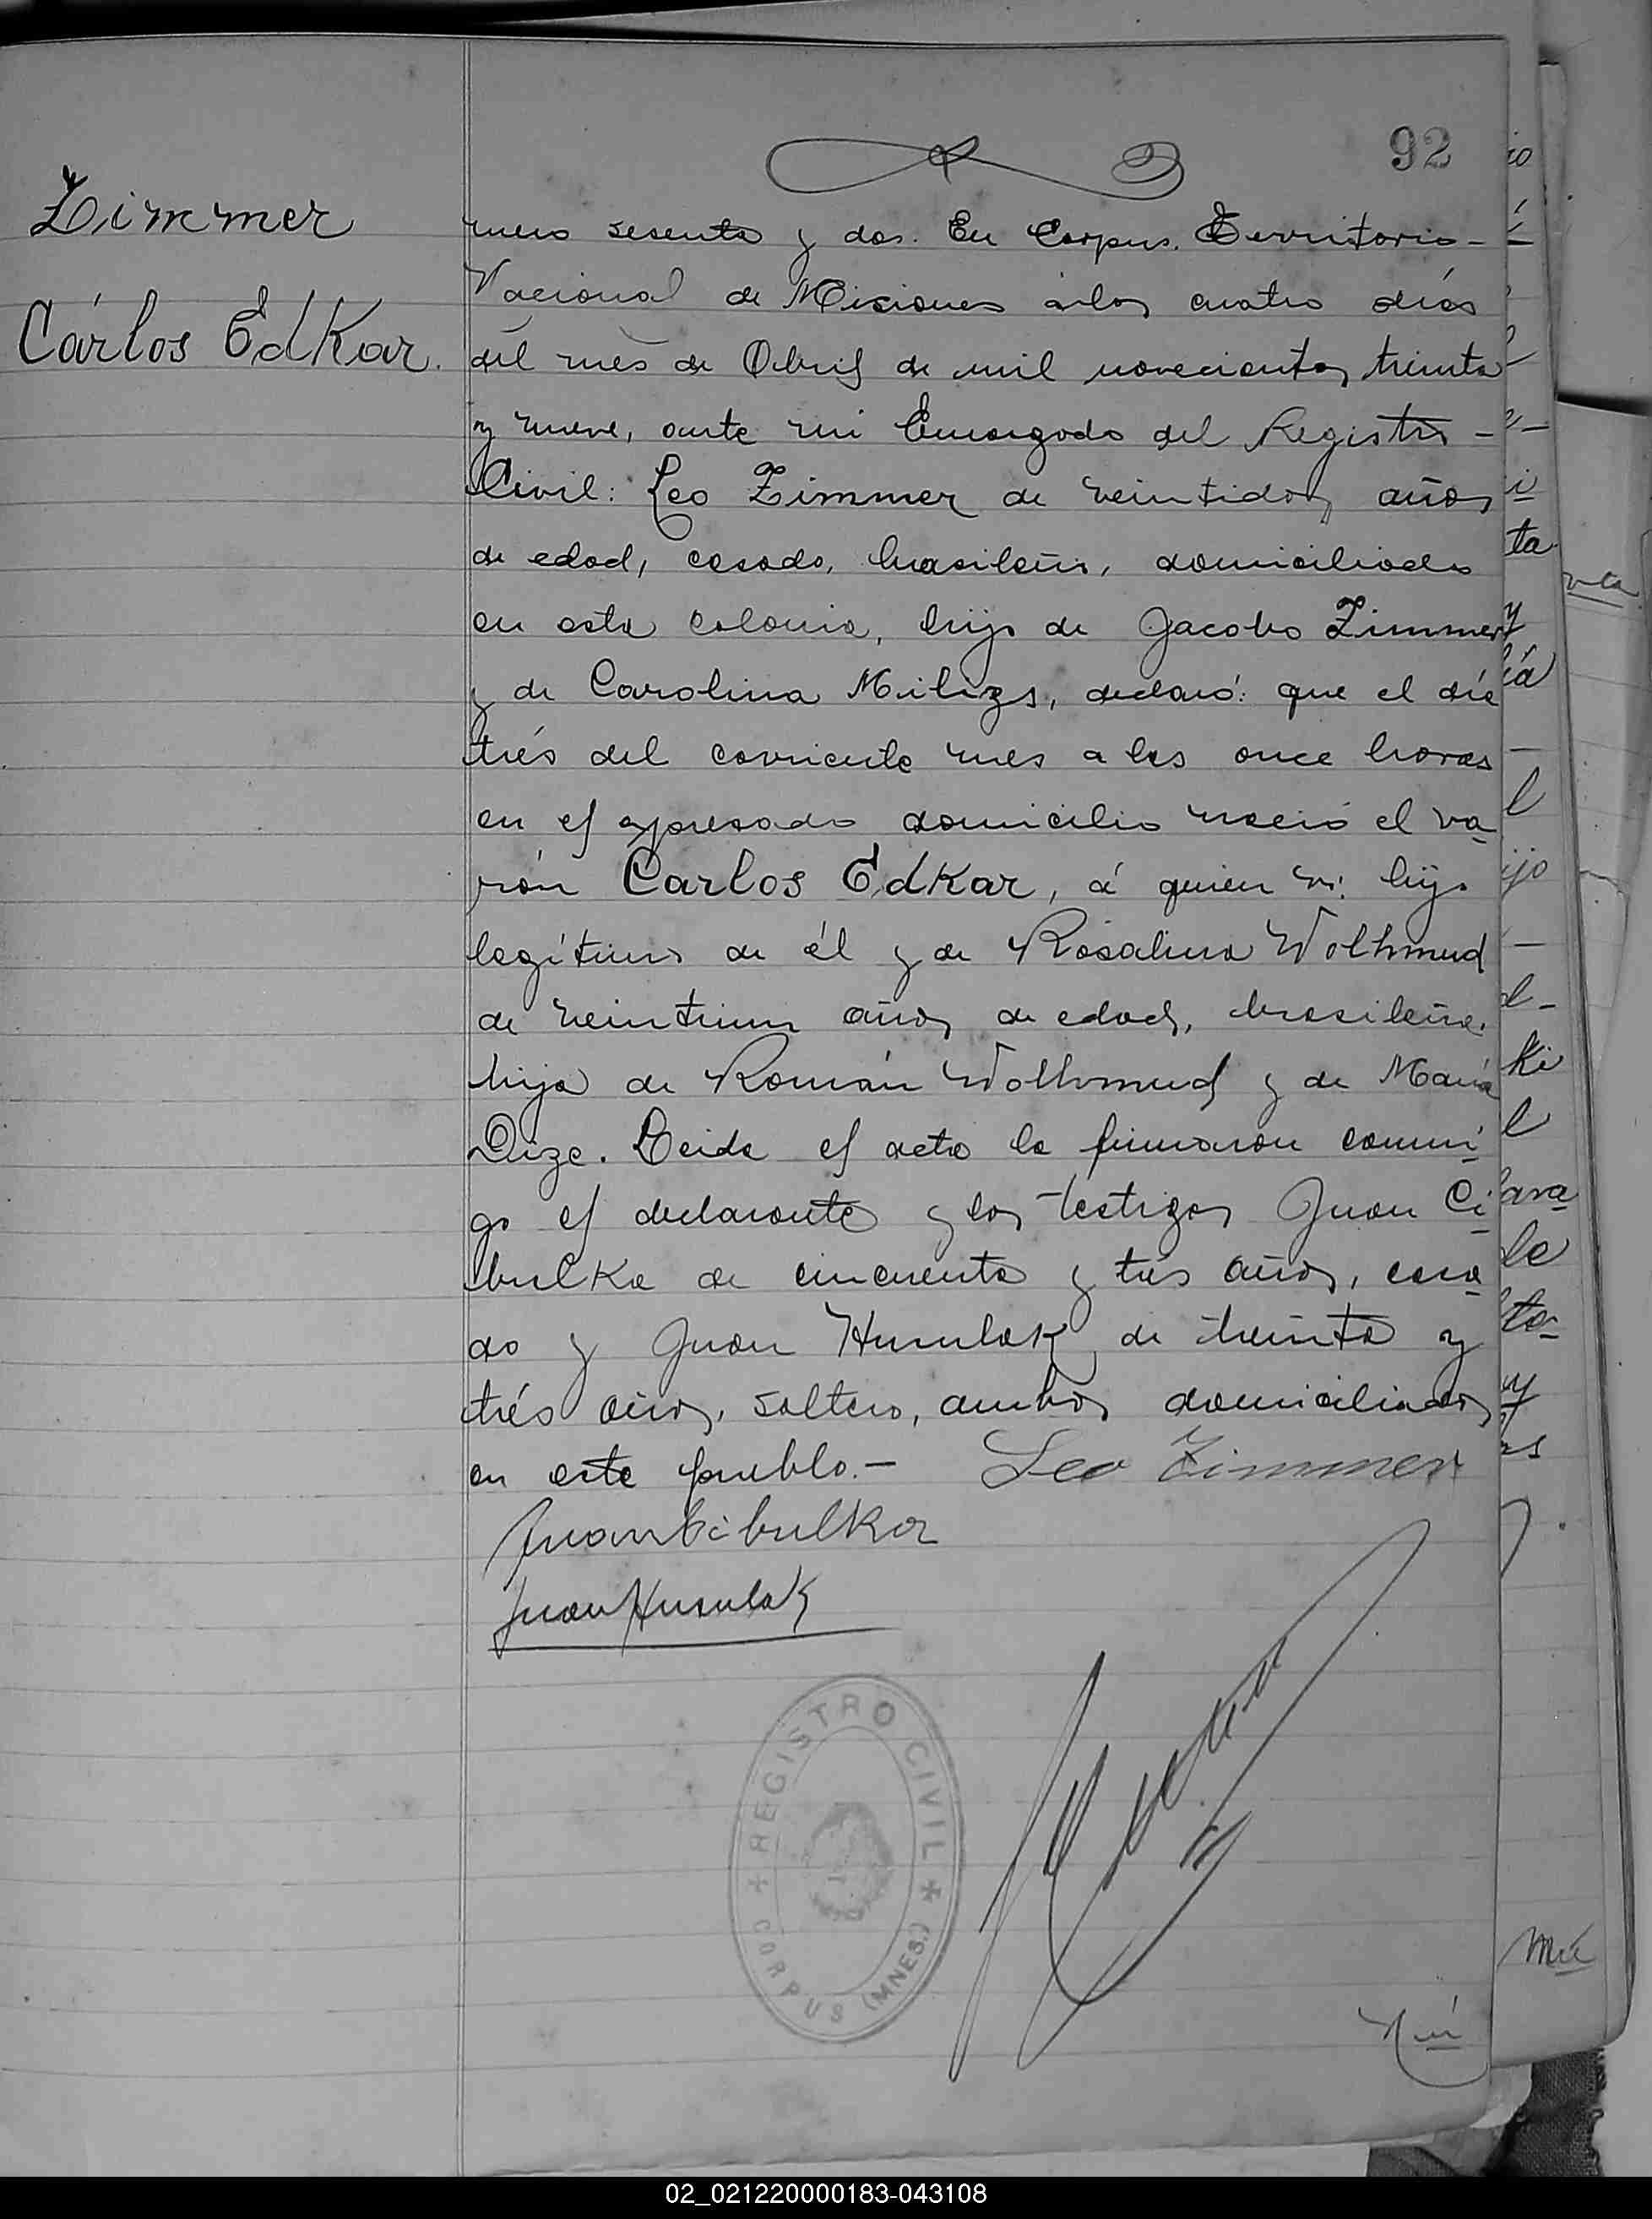 92
Zimmer
Cárlos EdKar.
mero sesenta y dos. En Corpus. Territorio-
Nacional de Misiones á los cuatro dias
del mes de Abril de mil novecientos treinta
y nueve, ante mi Encargado del Registro -
Civil: Leo Zimmer de veintidos años
de edad, casado, brasileño, domiciliado
en esta colonia, hijo de Jacobo Zimmer
y de Carolina Milizs, declaró: que el dia
trés del corriente mes a las once horas
en el expresado domicilio nació el va
rón Carlos EdKar, á quien vi: hijo
legítimo de él y de Rosalina Wolhmud
de veintiun años de edad, brasileña.
hija de Román Wolhmud y de Maria
Dize. Leida el acta la firmaron conmi
go el declarante y los testigos Juan Ci
bulKa de cincuenta y trés años, casa
do y Juan Husulak de treinta y
trés años, soltero, ambos domiciliados
en este pueblo.- Leo Zimmer
Juan CibulKa
Juan Husulak
REGISTRO CIVIL
CORPUS (MNES.)
Nú
02_021220000183-043108